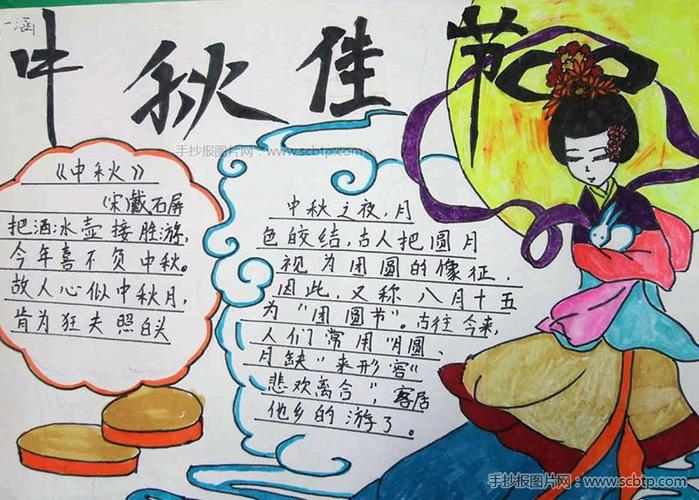 一涵
中秋佳节
手抄报图片网：www.scbtp.com
《中秋》
(宋)戴石屏
把酒冰壶接胜游，
今年喜不负中秋。
故人心似中秋月，
肯为狂夫照白头
中秋之夜,月
色皎结,古人把圆月
视为团圆的像征，
因此，又称八月十五
为“团圆节”。古往今来，
人们常用“月圆、
月缺”来形容“
悲欢离合”，客居
他乡的游了。
手抄报图片网：www.scbtp.com